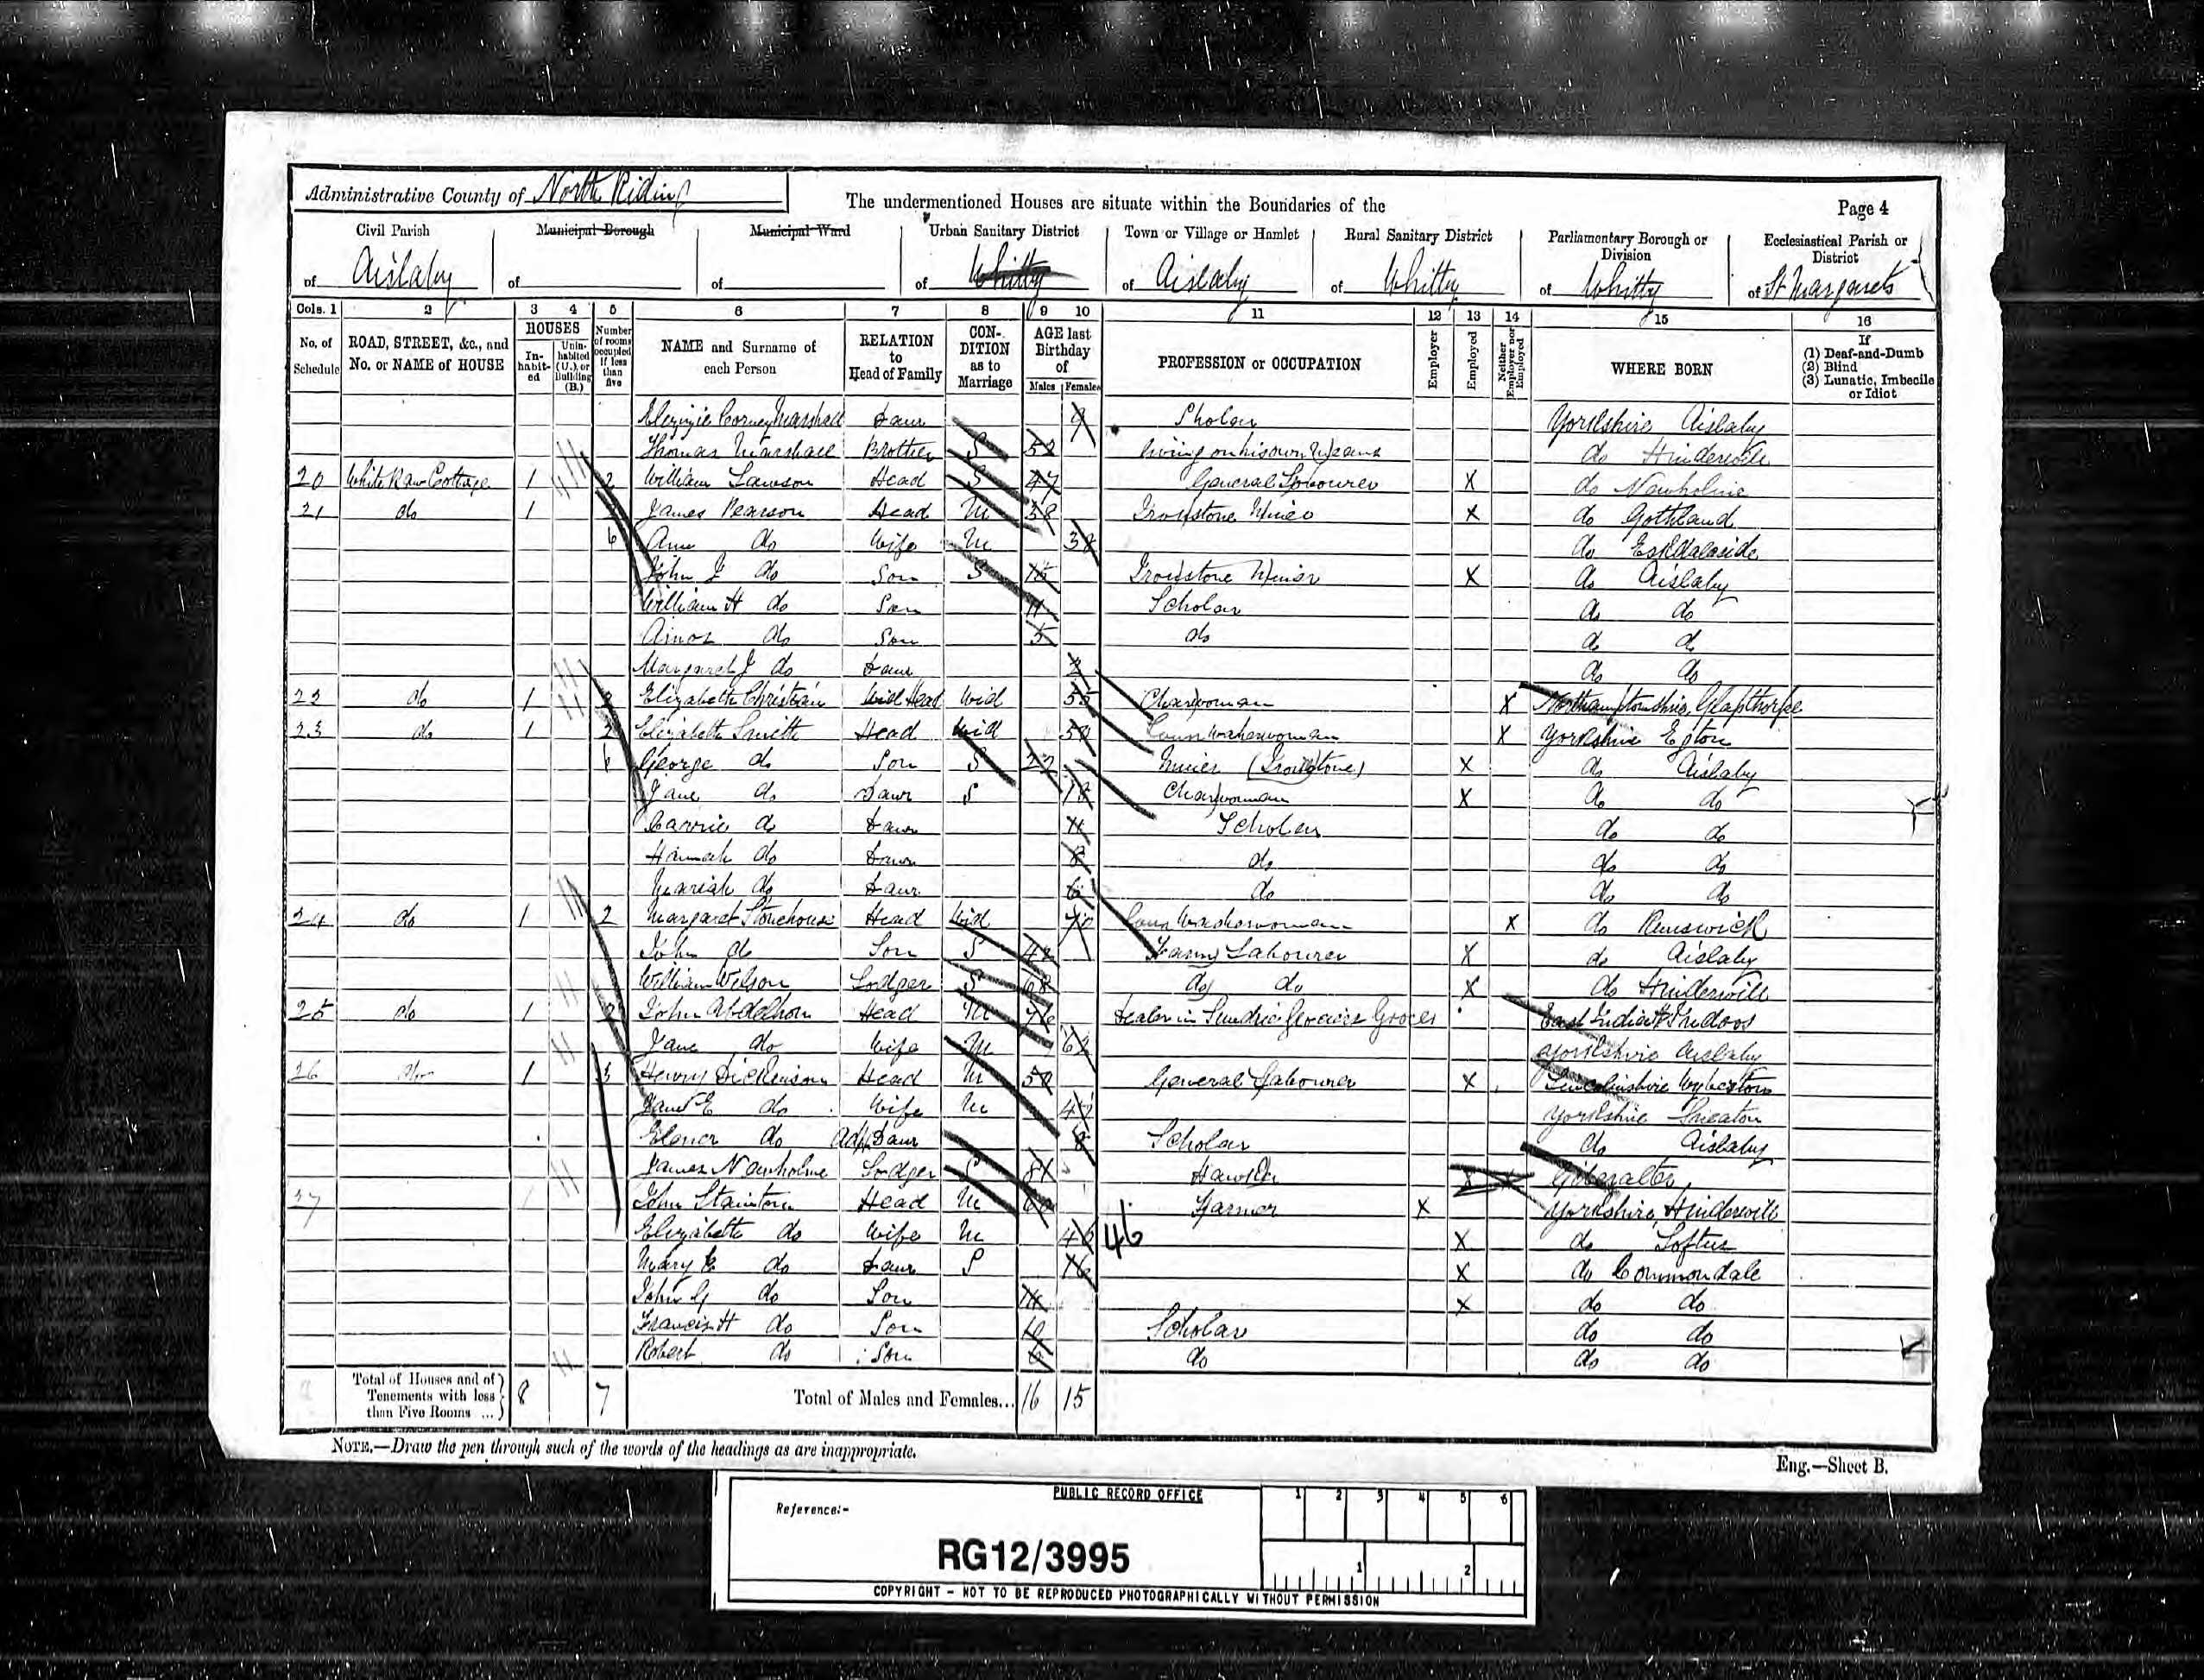 Administrative County of North Riding
The undermentioned Houses are situate within the Boundaries of the
Page 4
Civil Parish of Aislaby
Municipal Borough of
Municipal Ward of
Urban Sanitary District of Whitby
Town or Village or Hamlet of Aislaby
Rural Sanitary District of Whitby
Parliamentary Borough or Division of Whitby
Ecclesiastical Parish or District of St Margarets
Cols. 1 2 3 4 5 6 7 8 9 10 11 12 13 14 15 16
No. of Schedule
ROAD, STREET, &c., and No. or NAME of HOUSE
HOUSES
In-habit-ed
Unin-habited (U.), or Building (B.)
Number of rooms occupied if less than five
NAME and Surname of each Person
RELATION to Head of Family
CON-DITION as to Marriage
AGE last Birthday of
Males Females
PROFESSION or OCCUPATION
Employer
Employed
Neither Employer nor Employed
WHERE BORN
If (1) Deaf-and-Dumb (2) Blind (3) Lunatic, Imbecile or Idiot
Marshall Daur 9 Scholar Yorkshire Aislaby
Thomas Marshall Brother S 52 living on his own Means do Hinderwill
20 White Row Cottage 1 2 William Lawson Head S 47 General Labourer X do Newholme
21 do 1 James Pearson Head M 38 Ironstone Miner X do Gothland
6 Ann do Wife M 38 do Eskdaleside
John J do Son S Ironstone Miner X do Aislaby
William H do Son 11 Scholar do do
Amos do Son 5 do do do
Margaret J do Daur 2 do do
22 do 1 2 Elizabeth Christian Head Wid 55 Charwoman X Northamptonshire, Glapthorpe
23 do 1 2 Elizabeth Smith Head Wid 50 washerwoman X Yorkshire Egton
6 George do Son S 22 Miner (Ironstone) X do Aislaby
Jane do Daur S 18 Charwoman X do do
Carrie do Daur 11 Scholar do do
Hannah do Daur 8 do do do
Mariah do Daur 6 do do do
24 do 1 2 Margaret Stonehouse Head Wid 70 Washerwoman X do Runswick
John do Son S 42 Farm Labourer X do Aislaby
William Welson Lodger S 68 do do X do Hinderwill
25 do 1 2 John Head M 76 Dealer in Grocer East Indies
Jane do Wife M 62 Yorkshire Aislaby
26 do 1 3 Henry Dickenson Head M 50 General Labourer X Lincolnshire
Jane E do Wife M 47 Yorkshire Sneaton
Elenor do Adp Daur 8 Scholar do Aislaby
James Newholme Lodger S 81 Hawker X X Giberalter
27 1 John Stainton Head M 60 Farmer X Yorkshire, Hinderwill
Elizabeth do Wife M 46 46 X do Loftus
Mary E do Daur S 16 X do Commondale
John G do Son 14 X do do
Francis H do Son 10 Scholar do do
Robert do Son 6 do do do
Total of Houses and of Tenements with less than Five Rooms ... 8 7
Total of Males and Females... 16 15
NOTE.—Draw the pen through such of the words of the headings as are inappropriate.
Eng.—Sheet B.
PUBLIC RECORD OFFICE
1 2 3 4 5 6
Reference:-
RG12/3995
1 2
COPYRIGHT - NOT TO BE REPRODUCED PHOTOGRAPHICALLY WITHOUT PERMISSION